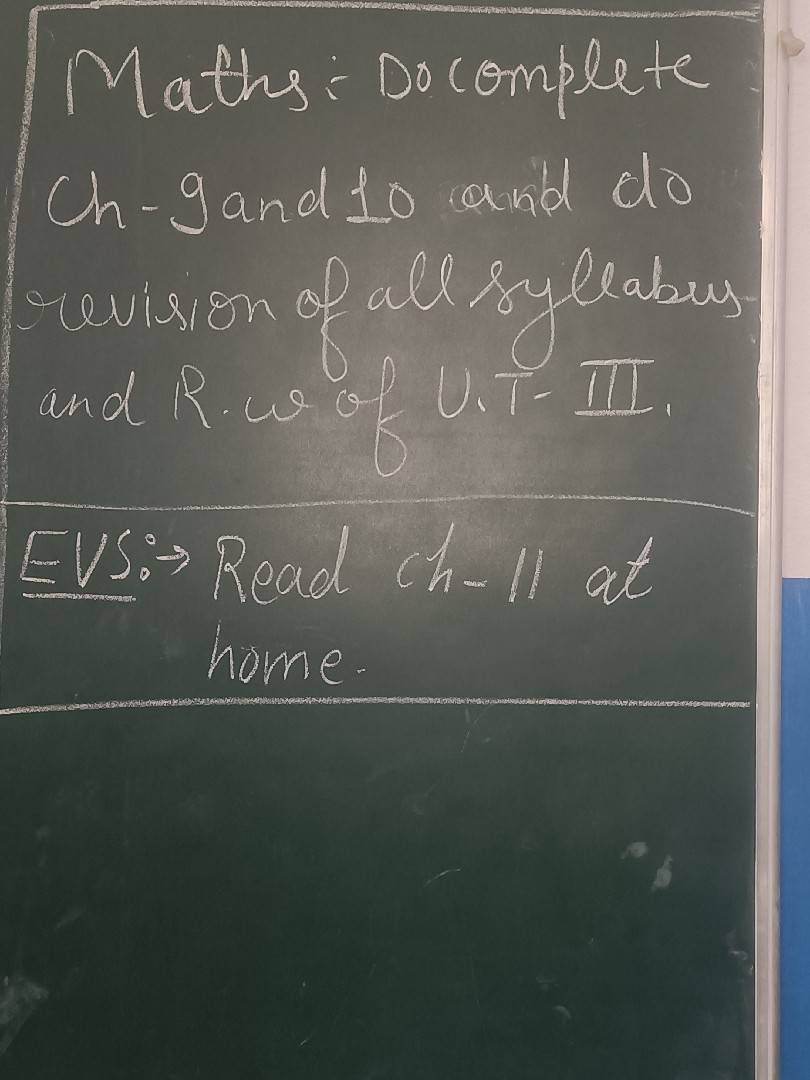 Maths :- Do complete
Ch-9 and 10 and do
revision of all syllabus
and R.w of U.T- III.
EVS:→ Read ch-11 at
home.